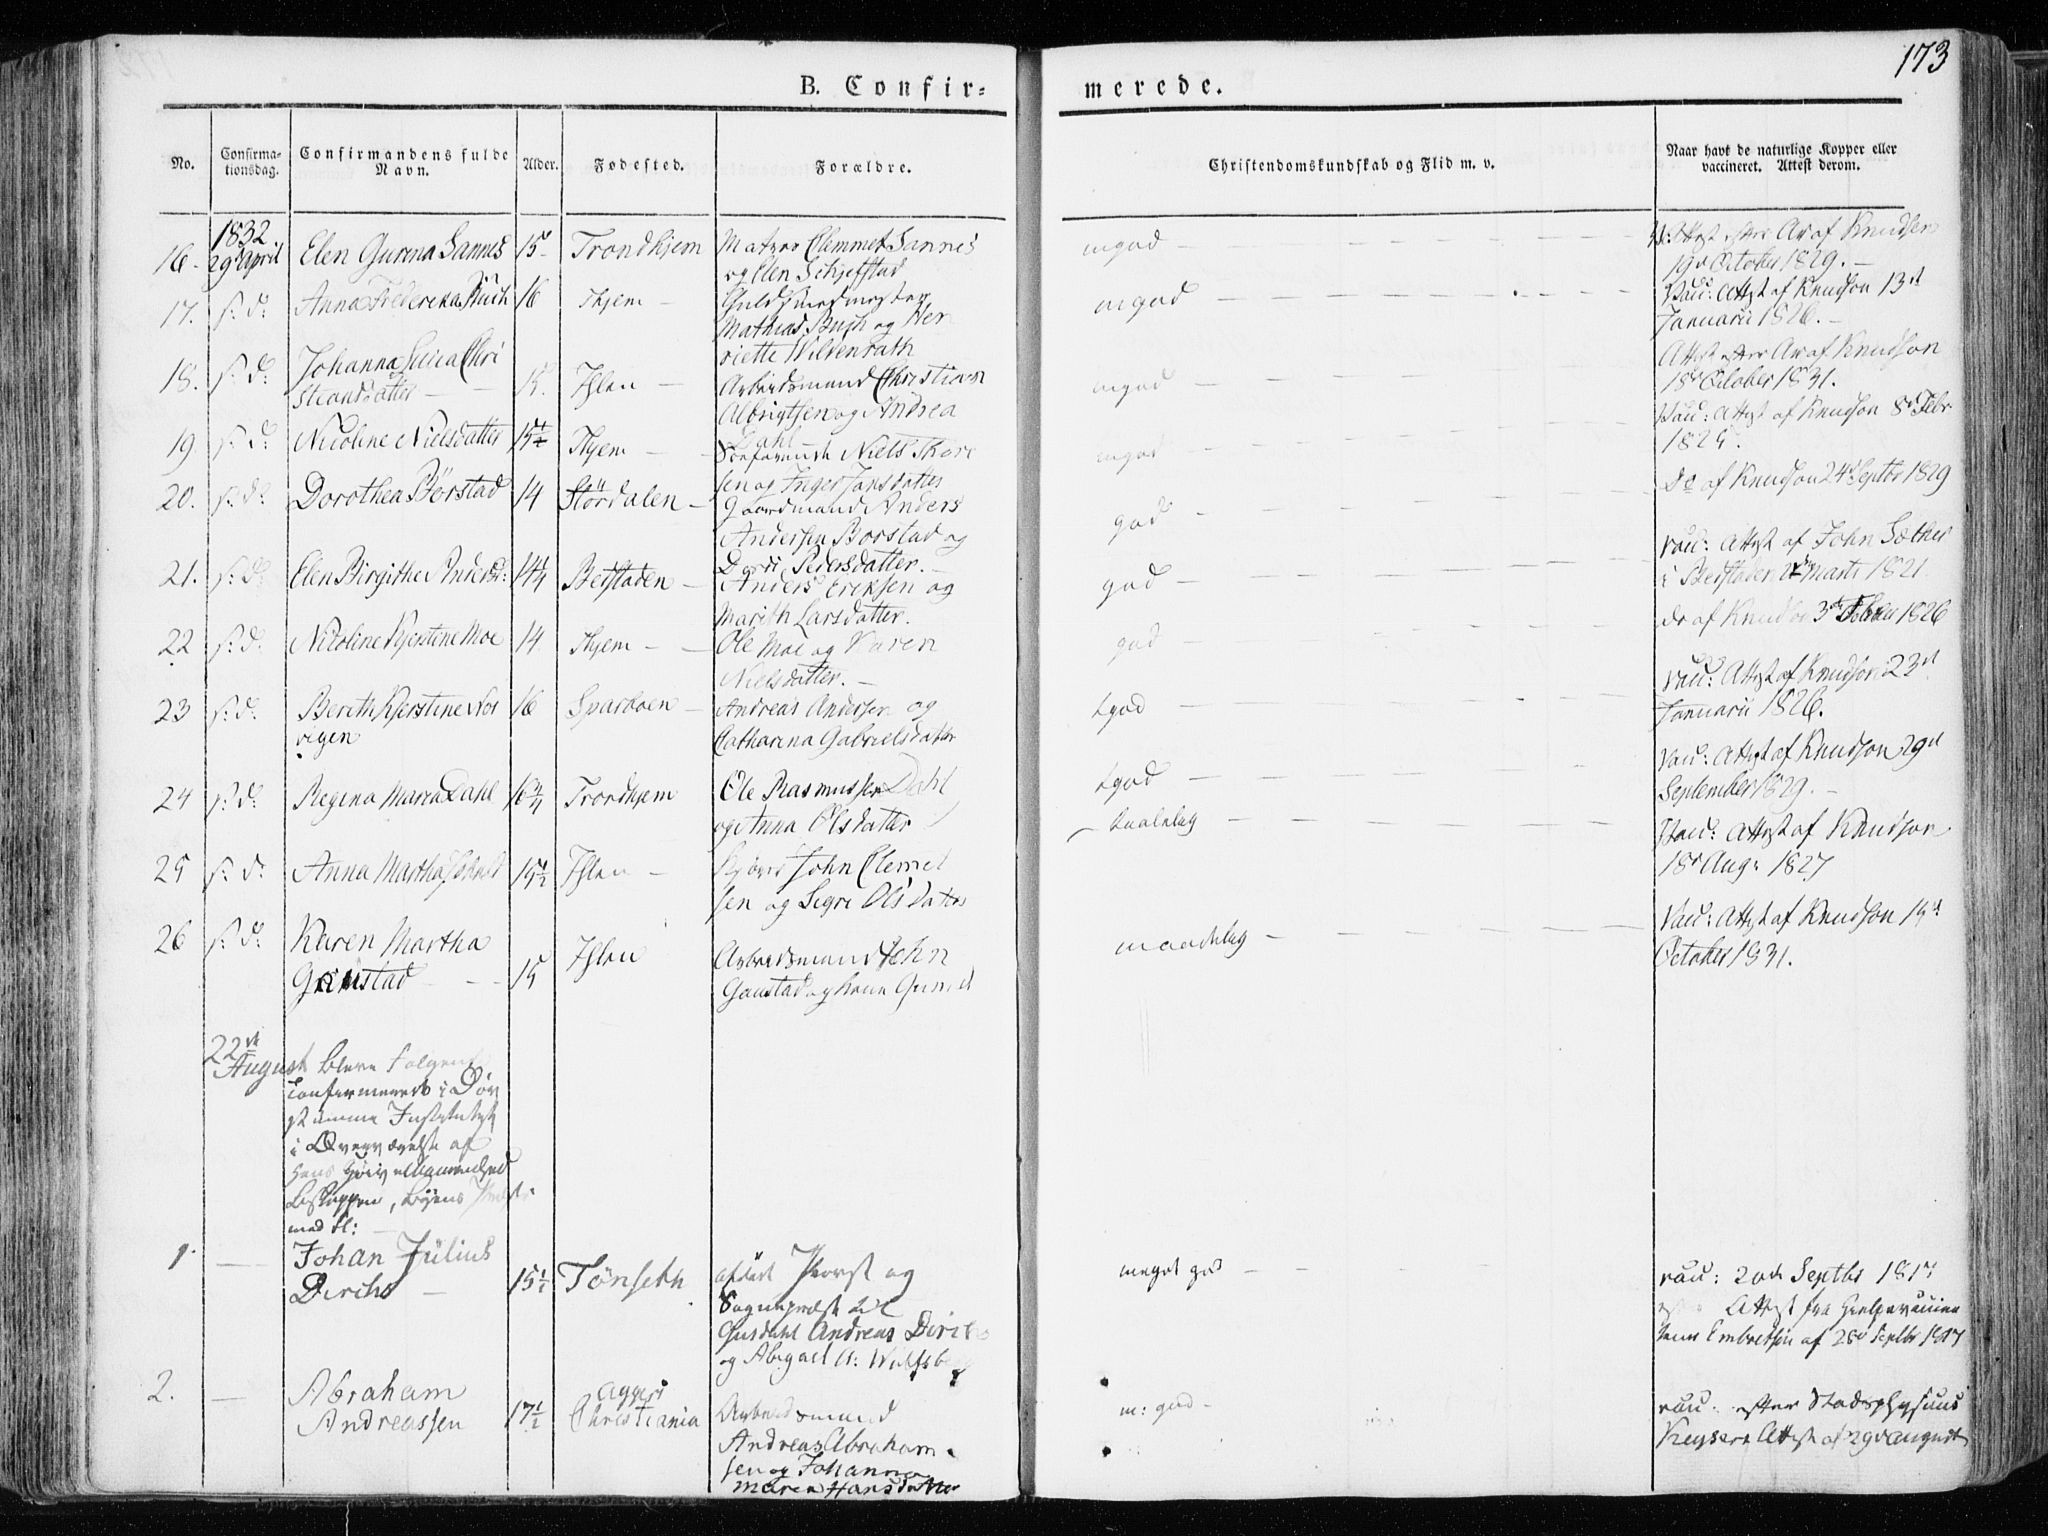 173
B. Confir=
merede.
No.
Confirma-
tionsdag.
Confirmandens fulde
Navn.
Alder.
Fødested.
Forældre.
Christendomskundskab og Flid m. v.
Naar havt de naturlige Kopper eller
vaccineret. Attest derom.
1832
16. 29d April Elen Gurina Sannes 15 Trondhjem Clemmet Sannes
og Elen
mgod
Attest af Knudson
19d October 1829.
17. s: d: Anna Frederika Buch 16 Thjem Guldsmedmester
Mathias Buch og Hen
riette Wildenrath
mgod
Vacc: Attest af Knudson 13d
Januarii 1826.
18. s: d: Johanna Chri
stiansdatter 15. Ihlen Arbeidsmand Christian
Albrigtsen og Andrea
Dahl
mgod
Attest af Knudson
18d October 1831.
19. s: d: Nicoline Nielsdatter 15½ Thjem Niels Thore
sen og Inger Jansdatter
mgod
Vacc: Attest af Knudson 8d Febr
20. s: d: Dorothea Börstad 14 Stördalen Gaardmand Anders
Andersen Borstad og
Dordi Pedersdatter.
god
Do af Knudson 24d Septbr 1829
21. s: d: Elen Birgithe Andersd: 14¼ Beitstaden Anders Eriksen og
Marith Larsdatter.
god
Vacc: Attest af John Sæther
i Beitstaden Marti 1821
22 s: d: Nicoline Kjerstine Moe 14 Thjem Ole Moe og Karen
Nielsdatter.
god
do af Knudson 3d 1826
23 s: d: Berith Kjerstine Nor
vigen 16 Sparboen Andreas Andersen og
Catharina Gabrielsdatter
tgod
vacc: Attest af Knudson 23d
Januarii 1826.
24 s: d: Regina Maria Dahl 16¾ Trondhjem Ole Rasmussen Dahl
og Anna Olsdatter
tgod
Vacc: Attest af Knudson 29d
September 1829.
25 s: d: Anna Martha 15½ Ihlen John Clemet
sen og Sigri Olsdatter
taalelig
Vacc: Attest af Knudson
18d Aug: 1827
26 s: d: Karen Martha
Gaustad 15 Ihlen Arbeidsmand John
Gaustad og
maadelig
Vacc: Attest af Knudson 19d
October 1831.
22de
August bleve Følgende
confirmerede i Döv
stumme Institutet
i Overværelse af
Hans Höiv
Biskoppen, Byens Præster
med fl:
1. Johan Julius
Dirchs 15½ Tönseth afdöd Provst og
Sognepræst til
Andreas Dirchs
og Abigael
meget god
vacc: 20d Septbr
Attest fra
Embretsen af 28d Septbr
2. Abraham
Andreassen 17½ Aggers
Christiania Arbeidsmand
Andreas Abraham
sen og Johanna
Maren Hansdatter
m: god
vacc: efter Stadsphysicus
Keysers Attest af 29d August